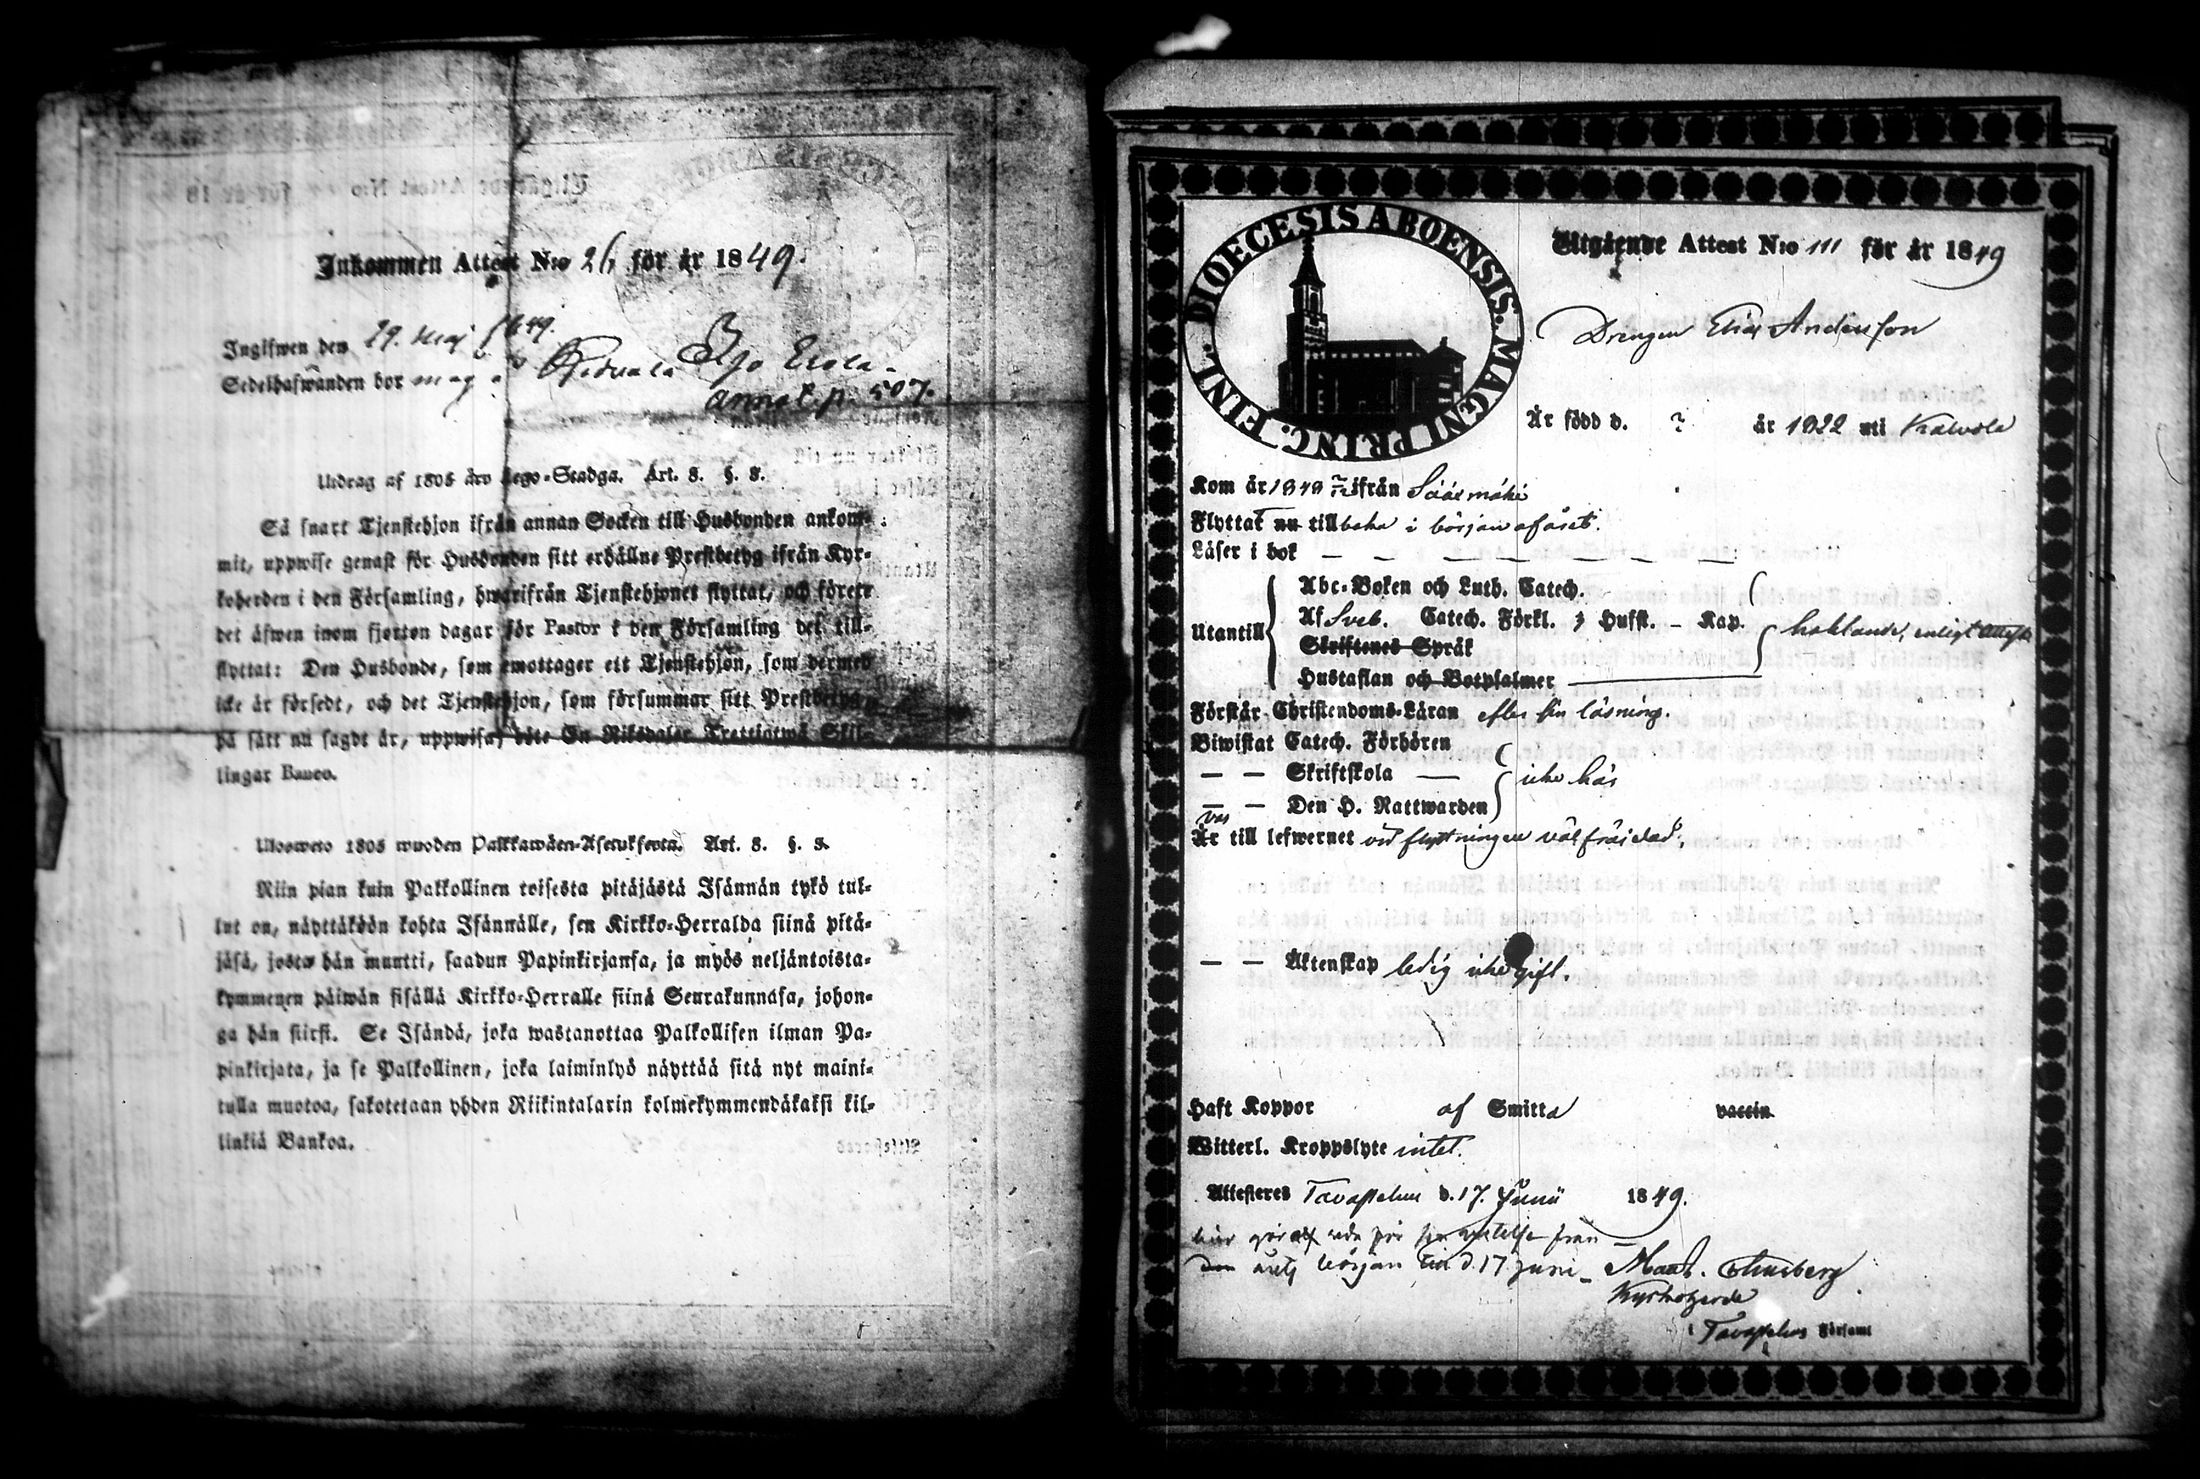 Inkommen Attest N:o 26 för år 1849.
Ingifwen den 29. Maj 1849.
Sedelhafwanden bor
annot. p. 507.
Utdrag af 1805 års Lego-Stadga. Art. 8. §. 8.
Så snart Tjenstehjon ifrån annan Socken till Husbonden ankom-
mit, uppwise genast för Husbonden sitt erhållne Prestbetyg ifrån Kyr-
koherden i den Församling, hwarifrån Tjenstehjonet flyttat, och förete
det äfwen inom fjorton dagar för Pastor i den Församling det till-
flyttat: Den Husbonde, som emottager ett Tjenstehjon, som dermed
icke är försedt, och det Tjenstehjon, som försummar sitt Prestbetyg,
på sätt nu sagdt är, uppwisa, böte En Riksdaler Trettiotwå Skil-
lingar Banco.
Ulosweto 1805 wuoden Palkkawäen-Asetuksesta. Art. 8. §. 8.
Niin pian kuin Palkollinen toisesta pitäjästä Isännän tykö tul-
lut on, näyttäköön kohta Isännälle, sen Kirkko-Herralda siinä pitä-
jäsä, josta hän muutti, saadun Papinkirjansa, ja myös neljäntoista-
kymmenen päiwän sisällä Kirkko-Herralle siinä Seurakunnasa, johon-
ga hän siirsi. Se Isändä, joka wastanottaa Palkollisen ilman Pa-
pinkirjata, ja se Palkollinen, joka laiminlyö näyttää sitä nyt maini-
tulla muotoa, sakotetaan yhden Riikintalarin kolmekymmendäkaksi kil-
linkiä Bankoa.
DIOECESIS ABOENSIS. MAGNI PRINC. FINL.
Utgående Attest N:o 111 för år 1849
Drengen Elias Andersson
Är född d. ? år 1822 uti Kalvola
Kom år 1849 ifrån Sääxmäki
Flyttat nu tillbaka i början af året.
Läser i bok — — — — — — —
Abc-Boken och Luth. Catech.
Utantill Af Sveb. Catech. Förkl. 3 Hufst. - Kap. haklande, enligt Attest
Skriftenes Språk
Hustaflan och Botpsalmer
Förstår Christendoms-Läran efter sin läsning.
Biwistat Catech. Förhören
— — Skriftskola — icke här
— — Den H. Nattwarden
var
Är till lefwernet vid flyttningen välfräjdad.
— — Äktenskap ledig icke gift.
Haft Koppor af Smitta vaccin
Witterl. Kroppslyte intet.
Attesteres Tavastehus d. 17. Junii 1849.
här göra reda för sin vistelse från
årets början till d. 17 Juni —
Kyrkoherde
i Tavastehus Församl